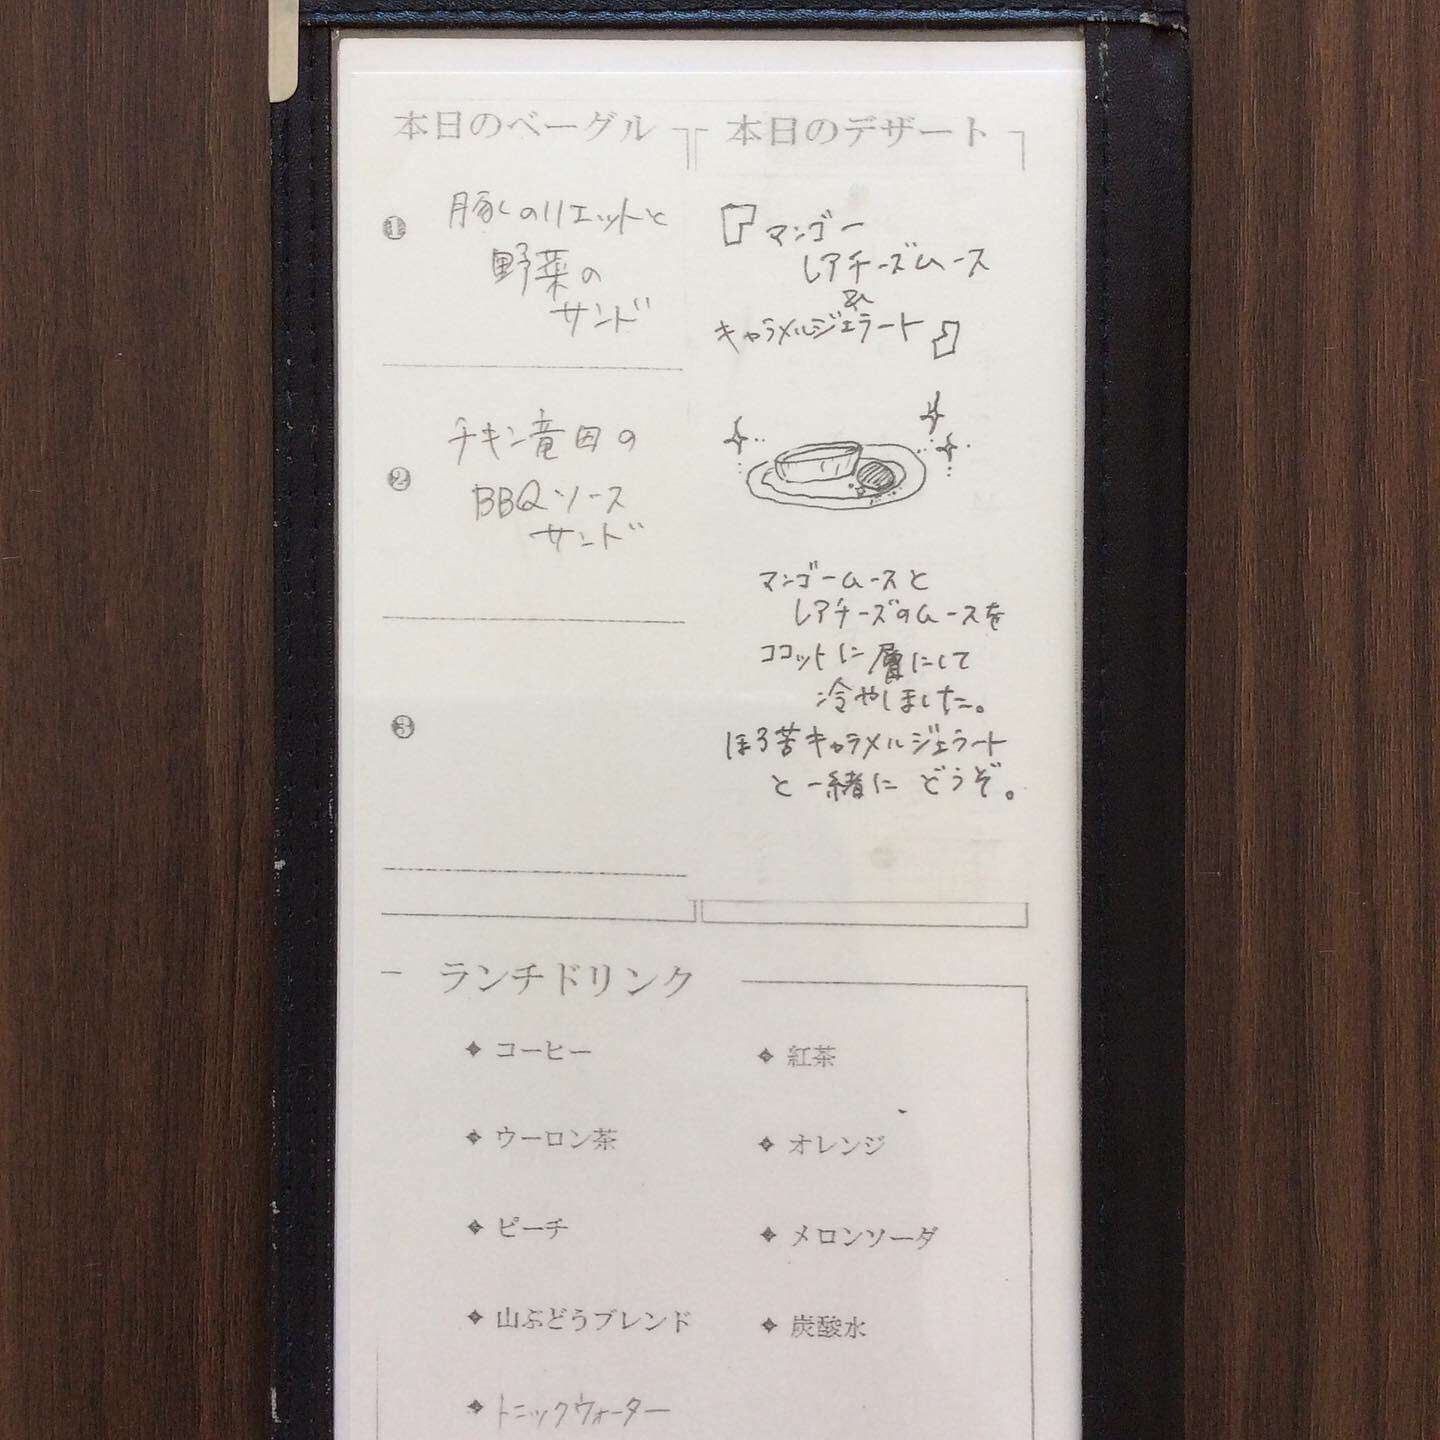 本日のベーグル
❶
豚しのリエットと
野菜の
サンド
❷
チキン竜田の
BBQソース
サンド
❸
本日のデザート
マンゴー
レアチーズムース
&
キャラメルジェラート
マンゴームースと
レアチーズのムースを
ココットに層にして
冷やしました。
ほろ苦キャラメルジェラート
と一緒に どうぞ。
ランチドリンク
コーヒー
紅茶
ウーロン茶
オレンジ
ピーチ
メロンソーダ
山ぶどうブレンド
炭酸水
トニックウォーター